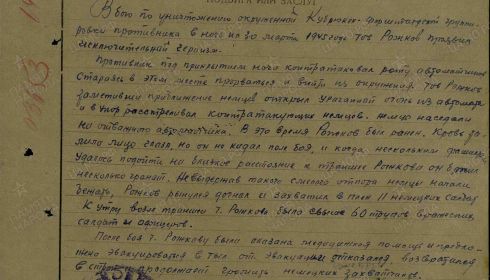 ПОДВИГА ИЛИ ЗАСЛУГ
В бою по уничтожению окруженной группи-
ровки противника в ночь на 30 марта 1945 года тов Рожков проявил
исключительный героизм.
Противник под прикрытием ночи контратаковал роту автоматчиков
Стараясь в этом месте прорваться и выйти из окружения. Тов Рожков
заметивший приближение немцев открыл ураганный огонь из автомата
и в упор расстреливал контратакующих немцев. Немцы наседали
на отважного автоматчика. В это время Рожков был ранен. Кровь за-
лила лицо глаза, но он не кидал поля боя, и когда нескольким
удалось подойти на близкое расстояние к траншее Рожкова он
несколько гранат. Невыдержав такого смелого отпора немцы начали
бежать, Рожков рынулся догнал и захватил в плен 11 немецких солдат
К утру возле траншеи т. Рожкова было свыше 60 трупов вражеских
солдат и офицеров.
После боя т. Рожкову была оказана медицинская помощь и предло-
жено эвакуироваться в тыл от эвакуации отказался, возвратился
в строй и продолжает громить немецких захватчиков.